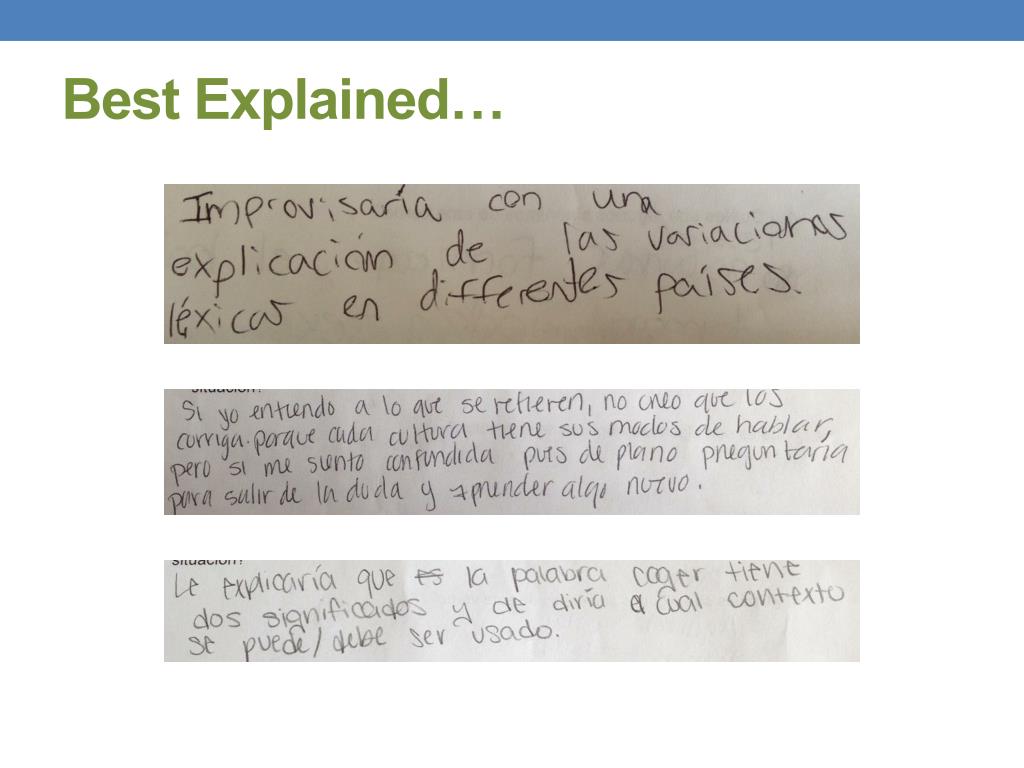 Best Explained…
Improvisaría con una
explicación de las variaciones
léxicas en differentes países.
situación?
Si yo entiendo a lo que se refieren, no creo que los
corriga. porque cada cultura tiene sus modos de hablar,
pero si me siento confundida pues de plano preguntaría
para salir de la duda y aprender algo nuevo.
situación?
Le explicaría que es la palabra coger tiene
dos significados y de diría a cual contexto
se puede/debe ser usado.